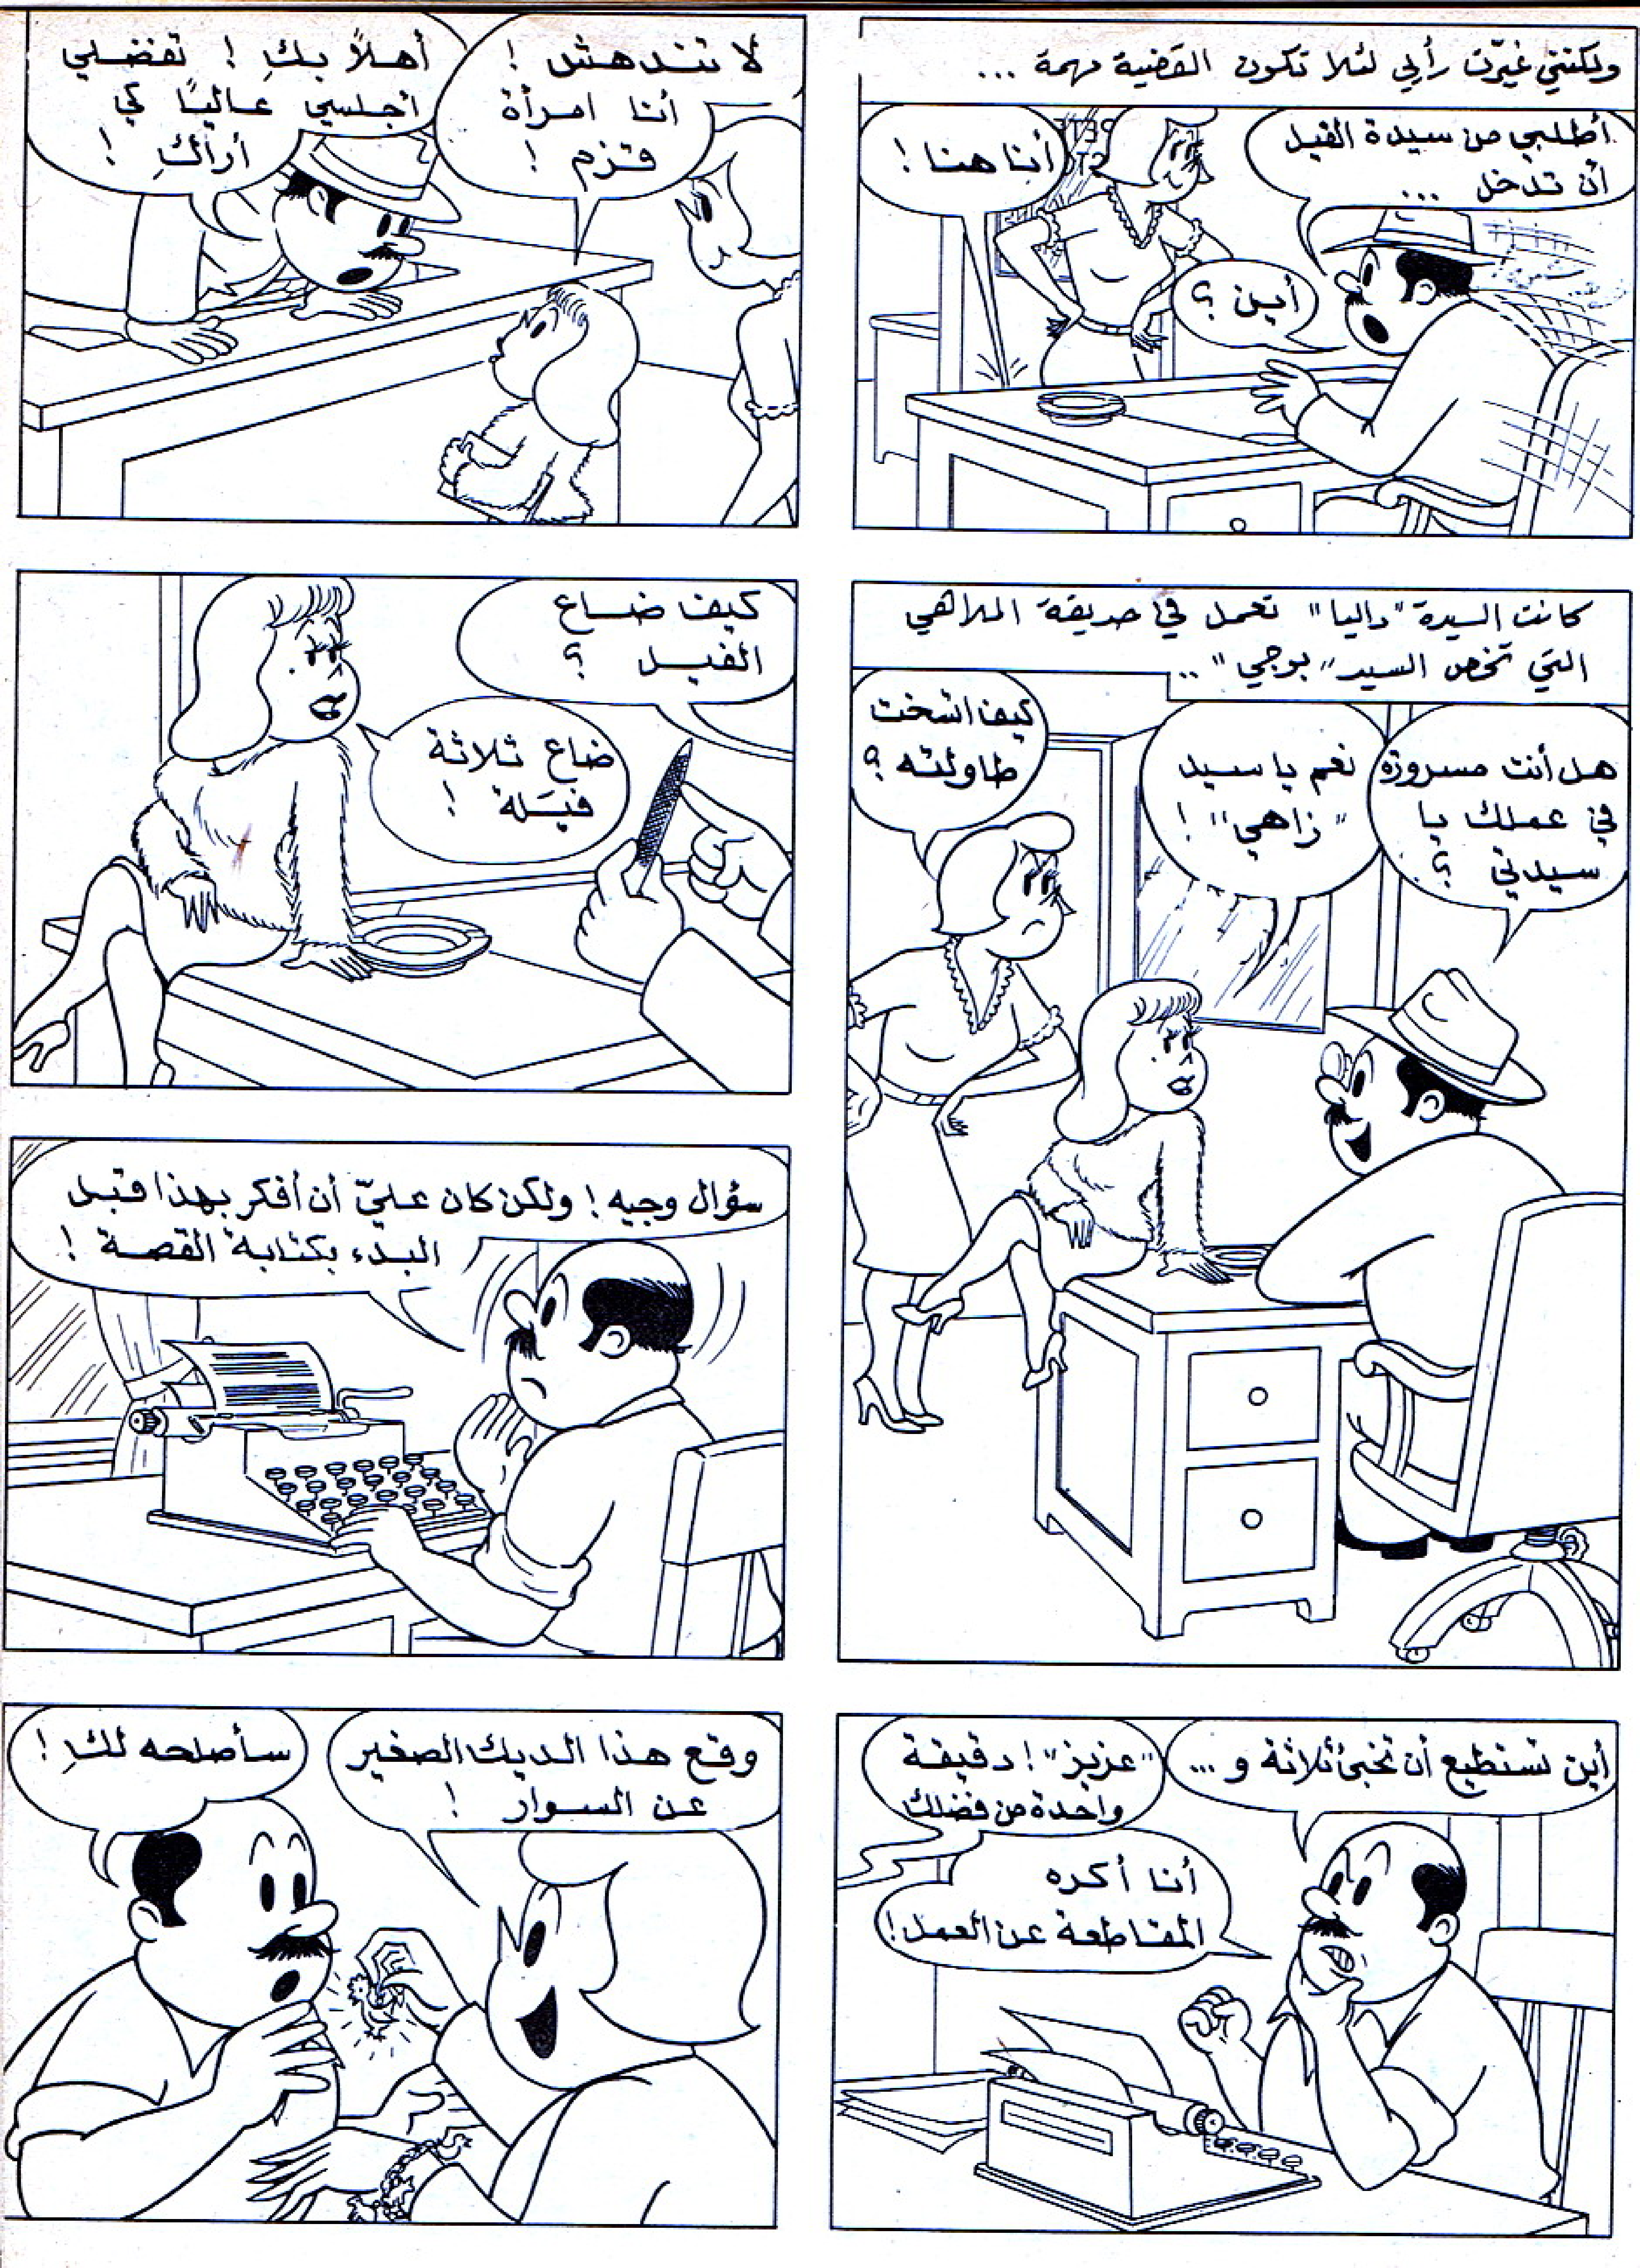 ولكنني غيّرت رأيي لئلا تكون القضية مهمة ...
أطلبي من سيدة الفيل
أن تدخل ...
أين ؟
أنا هنا !
لا تندهش !
أنا امرأة
قزم !
أهلاً بكِ ! تفضلي
اجلسي عاليًا كي
أراكِ !
كانت السيدة "داليا" تعمل في حديقة الملاهي
التي تخص السيد "بوجي" ..
هل أنت مسرورة
في عملك يا
سيدتي ؟
نعم يا سيد
"زاهي" !
كيف اتسخت
طاولته ؟
كيف ضاع
الفيل ؟
ضاع ثلاثة
فيَلة !
سؤال وجيه ! ولكن كان عليّ أن أفكر بهذا قبل
البدء بكتابة القصة !
أين تستطيع أن تخبئ ثلاثة و ...
"عزيز" ! دقيقة
واحدة من فضلك
أنا أكره
المقاطعة عن العمل !
وقع هذا الديك الصغير
عن السوار !
سأصلحه لكِ !